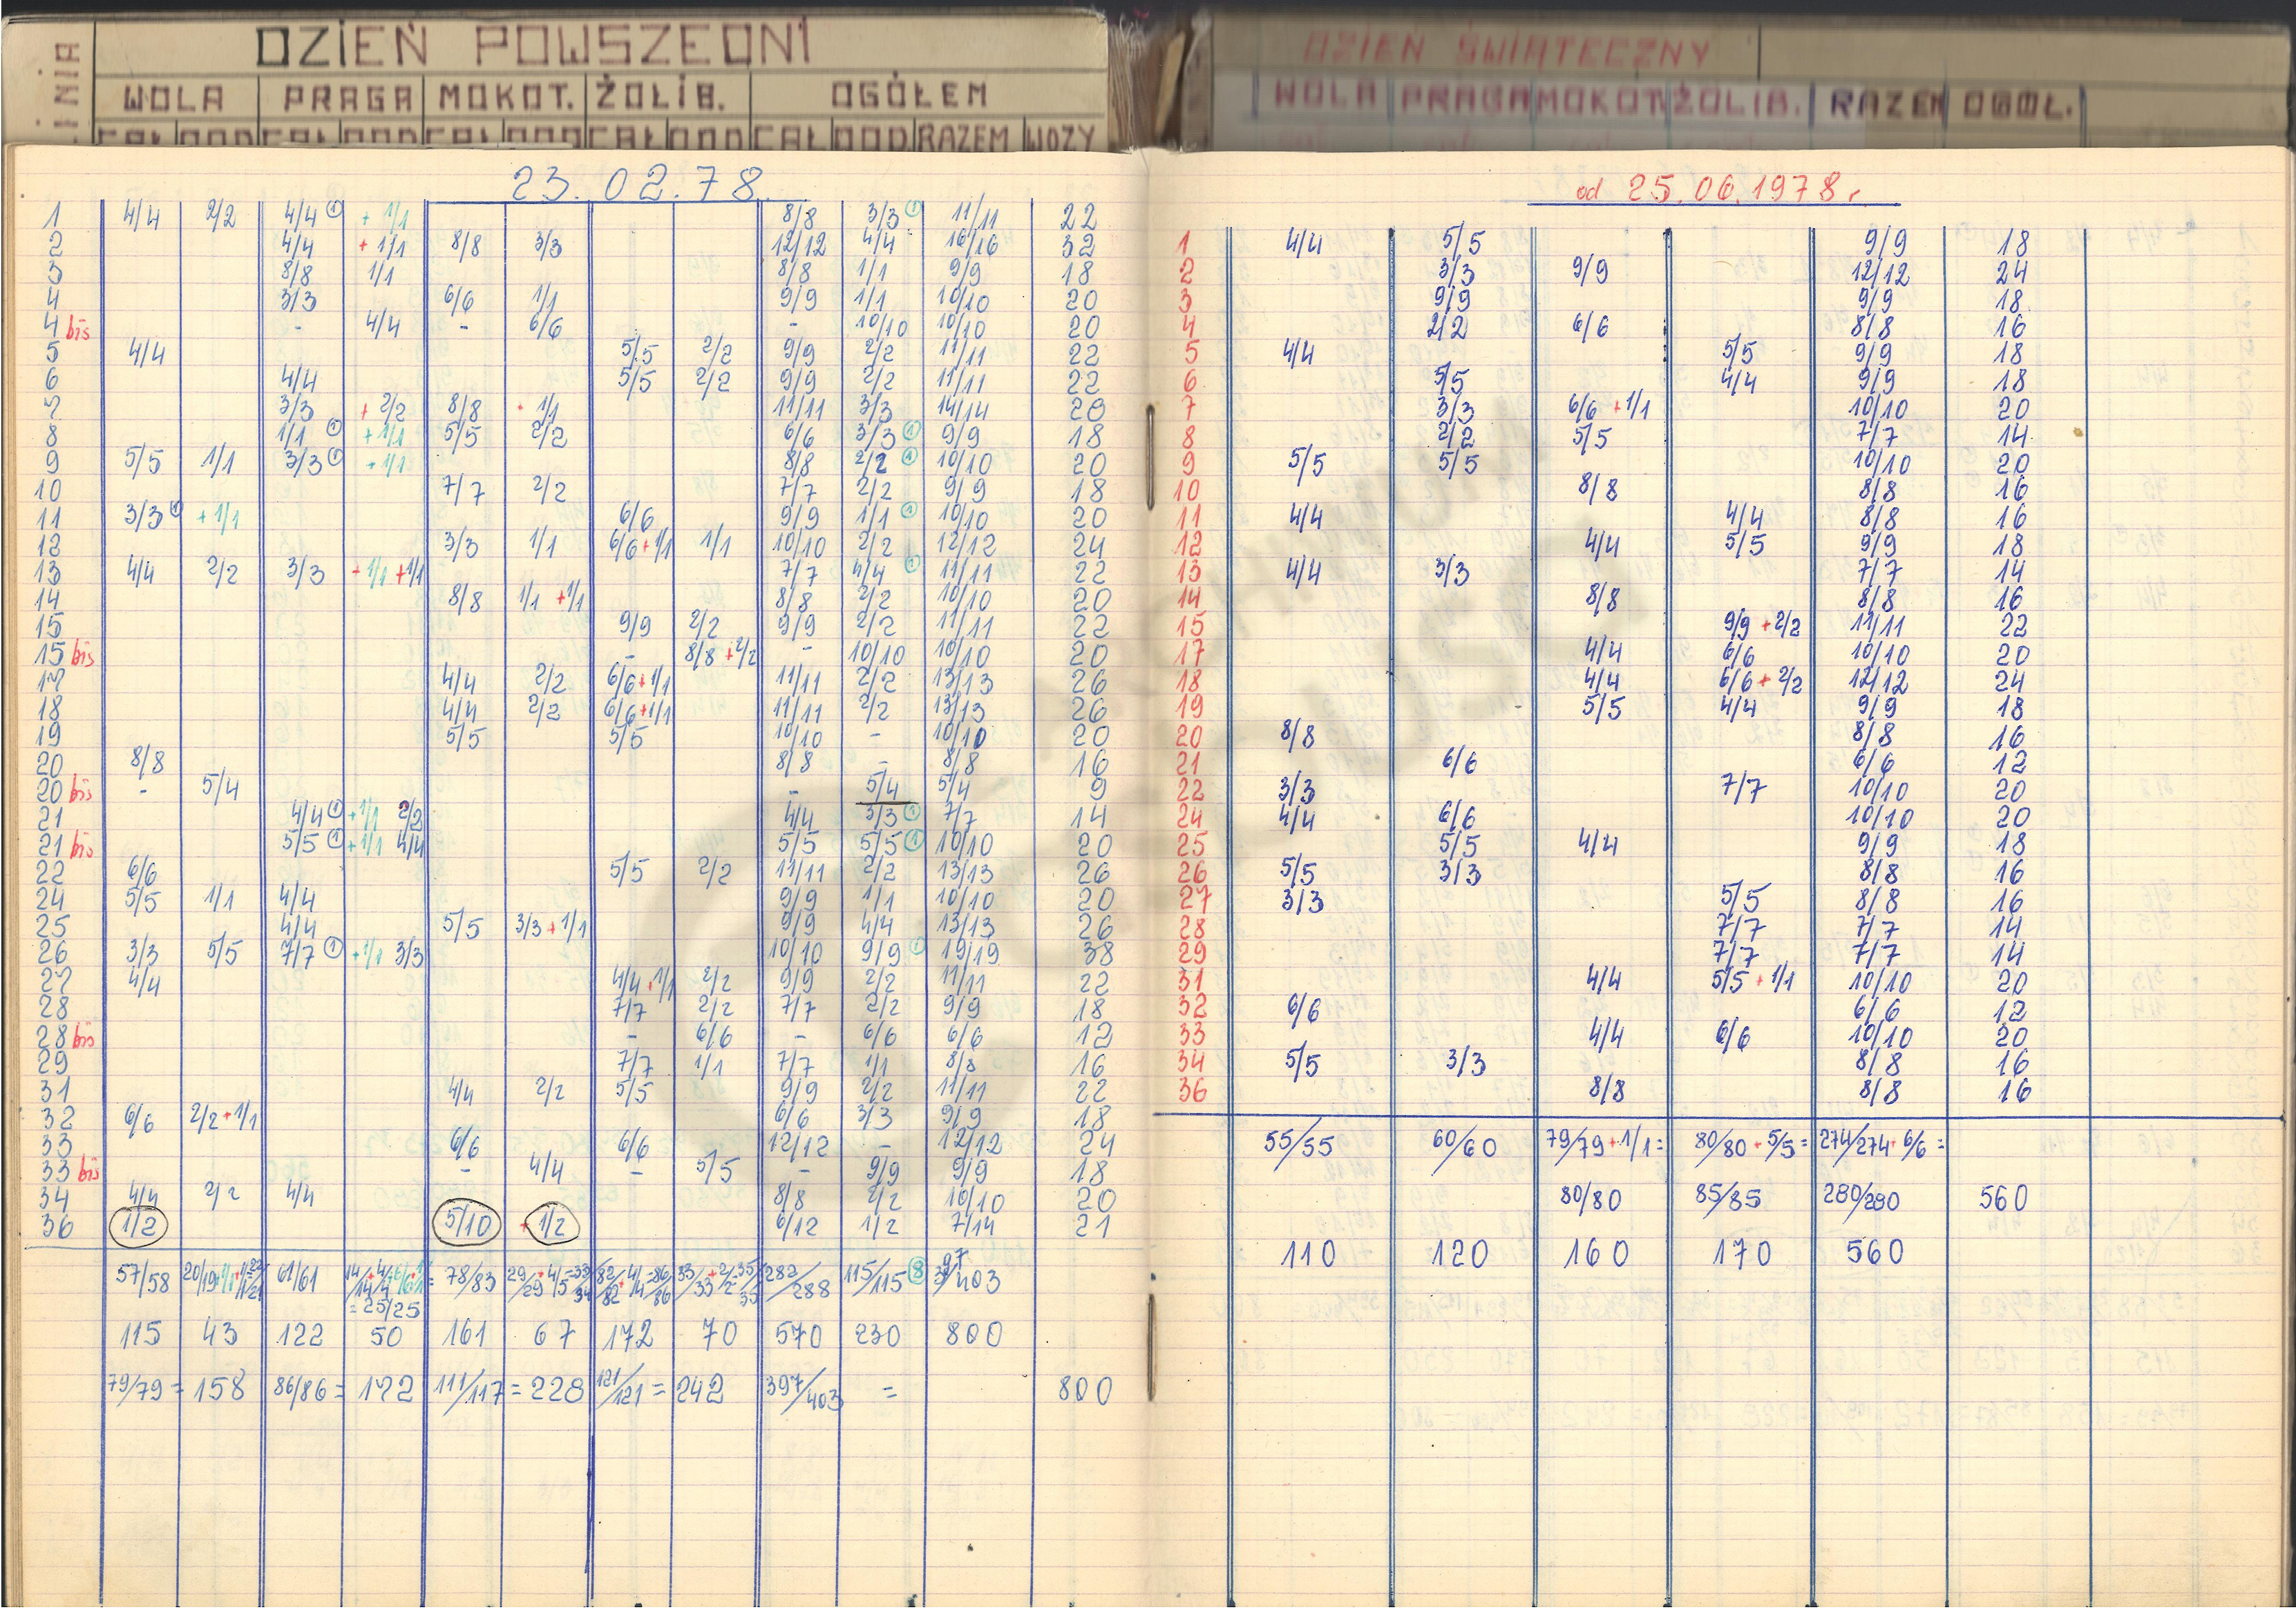 LINIA DZIEŃ POWSZEDNI
WOLA PRAGA MOKOT. ŻOLIB. OGÓŁEM
CAŁ DOD CAŁ DOD CAŁ DOD CAŁ DOD CAŁ DOD RAZEM WOZY
23.02.78
1 4/4 2/2 4/4 ① + 1/1 8/8 3/3 ① 11/11 22
2 4/4 + 1/1 8/8 3/3 12/12 4/4 16/16 32
3 8/8 1/1 8/8 1/1 9/9 18
4 3/3 6/6 1/1 9/9 1/1 10/10 20
4 bis - 4/4 - 6/6 - 10/10 10/10 20
5 4/4 5/5 2/2 9/9 2/2 11/11 22
6 4/4 5/5 2/2 9/9 2/2 11/11 22
7 3/3 + 2/2 8/8 + 1/1 11/11 3/3 14/14 20
8 1/1 ① + 1/1 5/5 2/2 6/6 3/3 ① 9/9 18
9 5/5 1/1 3/3 ① + 1/1 8/8 2/2 ① 10/10 20
10 7/7 2/2 7/7 2/2 9/9 18
11 3/3 ① + 1/1 6/6 9/9 1/1 ① 10/10 20
12 3/3 1/1 6/6 + 1/1 1/1 10/10 2/2 12/12 24
13 4/4 2/2 3/3 + 1/1 + 1/1 7/7 4/4 ① 11/11 22
14 8/8 1/1 + 1/1 8/8 2/2 10/10 20
15 9/9 2/2 9/9 2/2 11/11 22
15 bis - 8/8 + 2/2 - 10/10 10/10 20
17 4/4 2/2 6/6 + 1/1 11/11 2/2 13/13 26
18 4/4 2/2 6/6 + 1/1 11/11 2/2 13/13 26
19 5/5 5/5 10/10 - 10/10 20
20 8/8 8/8 - 8/8 16
20 bis - 5/4 - 5/4 5/4 9
21 4/4 ① + 1/1 2/2 4/4 3/3 ① 7/7 14
21 bis 5/5 ① + 1/1 4/4 5/5 5/5 ① 10/10 20
22 6/6 5/5 2/2 11/11 2/2 13/13 26
24 5/5 1/1 4/4 9/9 1/1 10/10 20
25 4/4 5/5 3/3 + 1/1 9/9 4/4 13/13 26
26 3/3 5/5 7/7 ① + 1/1 3/3 10/10 9/9 ① 19/19 38
27 4/4 4/4 + 1/1 2/2 9/9 2/2 11/11 22
28 7/7 2/2 7/7 2/2 9/9 18
28 bis - 6/6 - 6/6 6/6 12
29 7/7 1/1 7/7 1/1 8/8 16
31 4/4 2/2 5/5 9/9 2/2 11/11 22
32 6/6 2/2 + 1/1 6/6 3/3 9/9 18
33 6/6 6/6 12/12 - 12/12 24
33 bis - 4/4 - 5/5 - 9/9 9/9 18
34 4/4 2/2 4/4 8/8 2/2 10/10 20
36 1/2 5/10 + 1/2 6/12 1/2 7/14 21
57/58 61/61 = 25/25 78/83 29/29 + 4/5 = 33/34 82/82 + 4/4 = 86/86 33/33 + 2/2 = 35/35 282/288 115/115 ⑧ 397/403
115 43 122 50 161 67 172 70 570 230 800
79/79 = 158 86/86 = 172 111/117 = 228 121/121 = 242 397/403 = 800
DZIEŃ ŚWIĄTECZNY
WOLA PRAGA MOKOT ŻOLIB. RAZEM OGÓŁ.
od 25.06.1978 r.
1 4/4 5/5 9/9 18
2 3/3 9/9 12/12 24
3 9/9 9/9 18
4 2/2 6/6 8/8 16
5 4/4 5/5 9/9 18
6 5/5 4/4 9/9 18
7 3/3 6/6 + 1/1 10/10 20
8 2/2 5/5 7/7 14
9 5/5 5/5 10/10 20
10 8/8 8/8 16
11 4/4 4/4 8/8 16
12 4/4 5/5 9/9 18
13 4/4 3/3 7/7 14
14 8/8 8/8 16
15 9/9 + 2/2 11/11 22
17 4/4 6/6 10/10 20
18 4/4 6/6 + 2/2 12/12 24
19 5/5 4/4 9/9 18
20 8/8 8/8 16
21 6/6 6/6 12
22 3/3 7/7 10/10 20
24 4/4 6/6 10/10 20
25 5/5 4/4 9/9 18
26 5/5 3/3 8/8 16
27 3/3 5/5 8/8 16
28 7/7 7/7 14
29 7/7 7/7 14
31 4/4 5/5 + 1/1 10/10 20
32 6/6 6/6 12
33 4/4 6/6 10/10 20
34 5/5 3/3 8/8 16
36 8/8 8/8 16
55/55 60/60 79/79 + 1/1 = 80/80 + 5/5 = 274/274 + 6/6 =
80/80 85/85 280/280 560
110 120 160 170 560